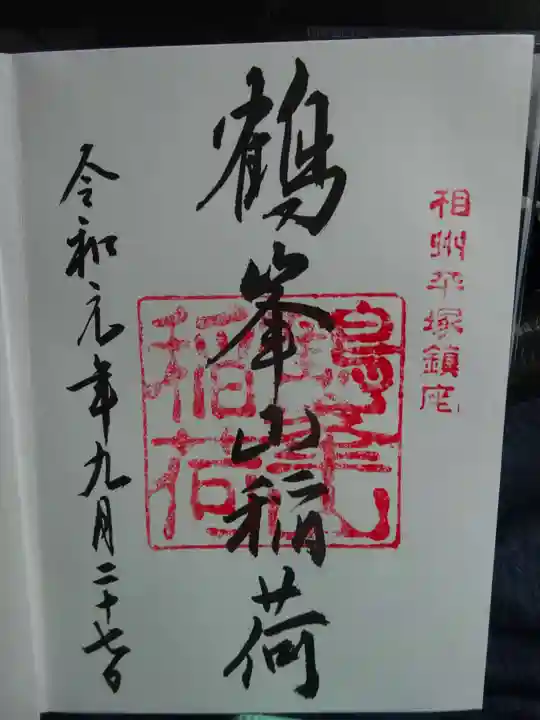 相州平塚鎮座
鶴峯山稲荷
令和元年九月二十七日